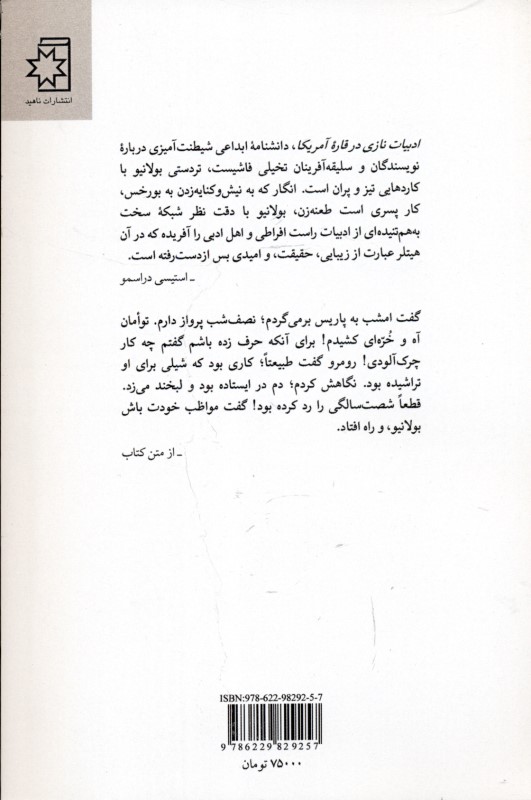 انتشارات ناهید
ادبیات نازی در قارهٔ آمریکا، دانشنامهٔ ابداعی شیطنت‌آمیزی دربارهٔ
نویسندگان و سلیقه‌آفرینان تخیلی فاشیست، تردستی بولانیو با
کاردهایی تیز و پران است. انگار که به نیش‌وکنایه‌زدن به بورخس،
کار پسری است طعنه‌زن، بولانیو با دقت نظر شبکهٔ سخت
به‌هم‌تنیده‌ای از ادبیات راست افراطی و اهل ادبی را آفریده که در آن
هیتلر عبارت از زیبایی، حقیقت، و امیدی بس ازدست‌رفته است.
ـ استیسی دراسمو
گفت امشب به پاریس برمی‌گردم؛ نصف‌شب پرواز دارم. توأمان
آه و خُرّه‌ای کشیدم! برای آنکه حرف زده باشم گفتم چه کار
چرک‌آلودی! رومرو گفت طبیعتاً؛ کاری بود که شیلی برای او
تراشیده بود. نگاهش کردم؛ دم در ایستاده بود و لبخند می‌زد.
قطعاً شصت‌سالگی را رد کرده بود! گفت مواظب خودت باش
بولانیو، و راه افتاد.
ـ از متن کتاب
ISBN:978-622-98292-5-7
9 786229 829257
۷۵۰۰۰ تومان